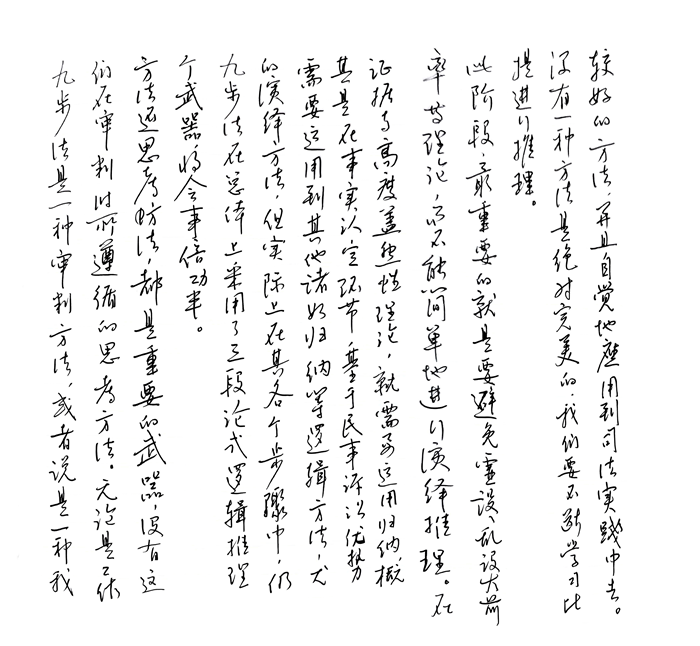 九步法是一种审判方法，或者说是一种我
们在审判时所遵循的思考方法。无论是工作
方法还思考方法，都是重要的武器，没有这
个武器，将会事倍功半。
九步法在总体上采用了三段论式逻辑推理
的演绎方法，但实际上在其各个步骤中，仍
需要运用到其他诸如归纳等逻辑方法，尤
其是在事实认定环节，基于民事诉讼优势
证据与高度盖然性理论，就需要运用归纳、概
率等理论，而不能简单地进行演绎推理。在
此阶段，最重要的就是要避免虚设、乱设大前
提进行推理。
没有一种方法是绝对完美的，我们要不断学习比
较好的方法，并且自觉地應用到司法实践中去。